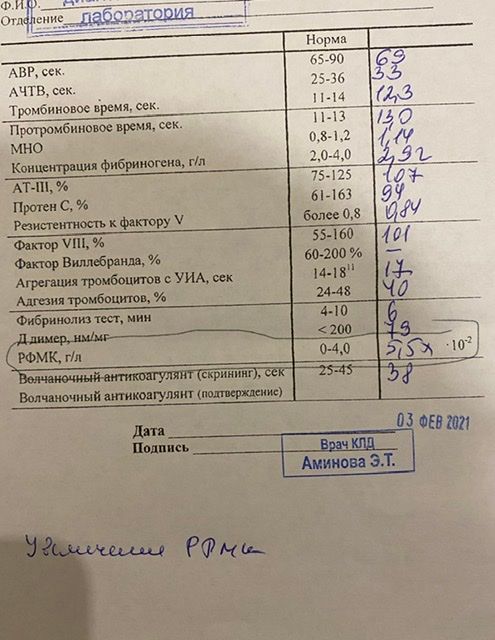 Ф.И.О.
лаборатория
Отделение
Норма
АВР, сек. 65-90 69
АЧТВ, сек. 25-36 33
Тромбиновое время, сек. 11-14 12,3
Протромбиновое время, сек. 11-13 13,0
МНО 0,8-1,2 1,14
Концентрация фибриногена, г/л 2,0-4,0 2,92
АТ-III, % 75-125 107
Протен С, % 61-163 94
Резистентность к фактору V более 0,8 0,84
Фактор VIII, % 55-160 101
Фактор Виллебранда, % 60-200 % –
Агрегация тромбоцитов с УИА, сек 14-18¹¹ 17
Адгезия тромбоцитов, % 24-48 40
Фибринолиз тест, мин 4-10 6
Д димер, нм/мг < 200 79
РФМК, г/л 0-4,0 5,5х ·10⁻²
Волчаночный антикоагулянт (скрининг), сек 25-45 38
Волчаночный антикоагулянт (подтверждение)
Дата 03 ФЕВ 2021
Подпись
Врач КЛД
Аминова Э.Т.
Увеличение РФМК